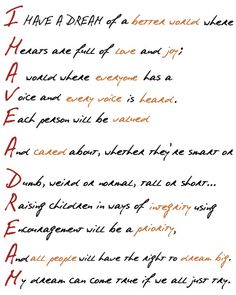 I HAVE A DREAM of a better world where
Hearts are full of love and joy;
A world where everyone has a
Voice and every voice is heard.
Each person will be valued
And cared about, whether they're smart or
Dumb, weird or normal, tall or short...
Raising children in ways of integrity using
Encouragement will be a priority,
And all people will have the right to dream big.
My dream can come true if we all just try.